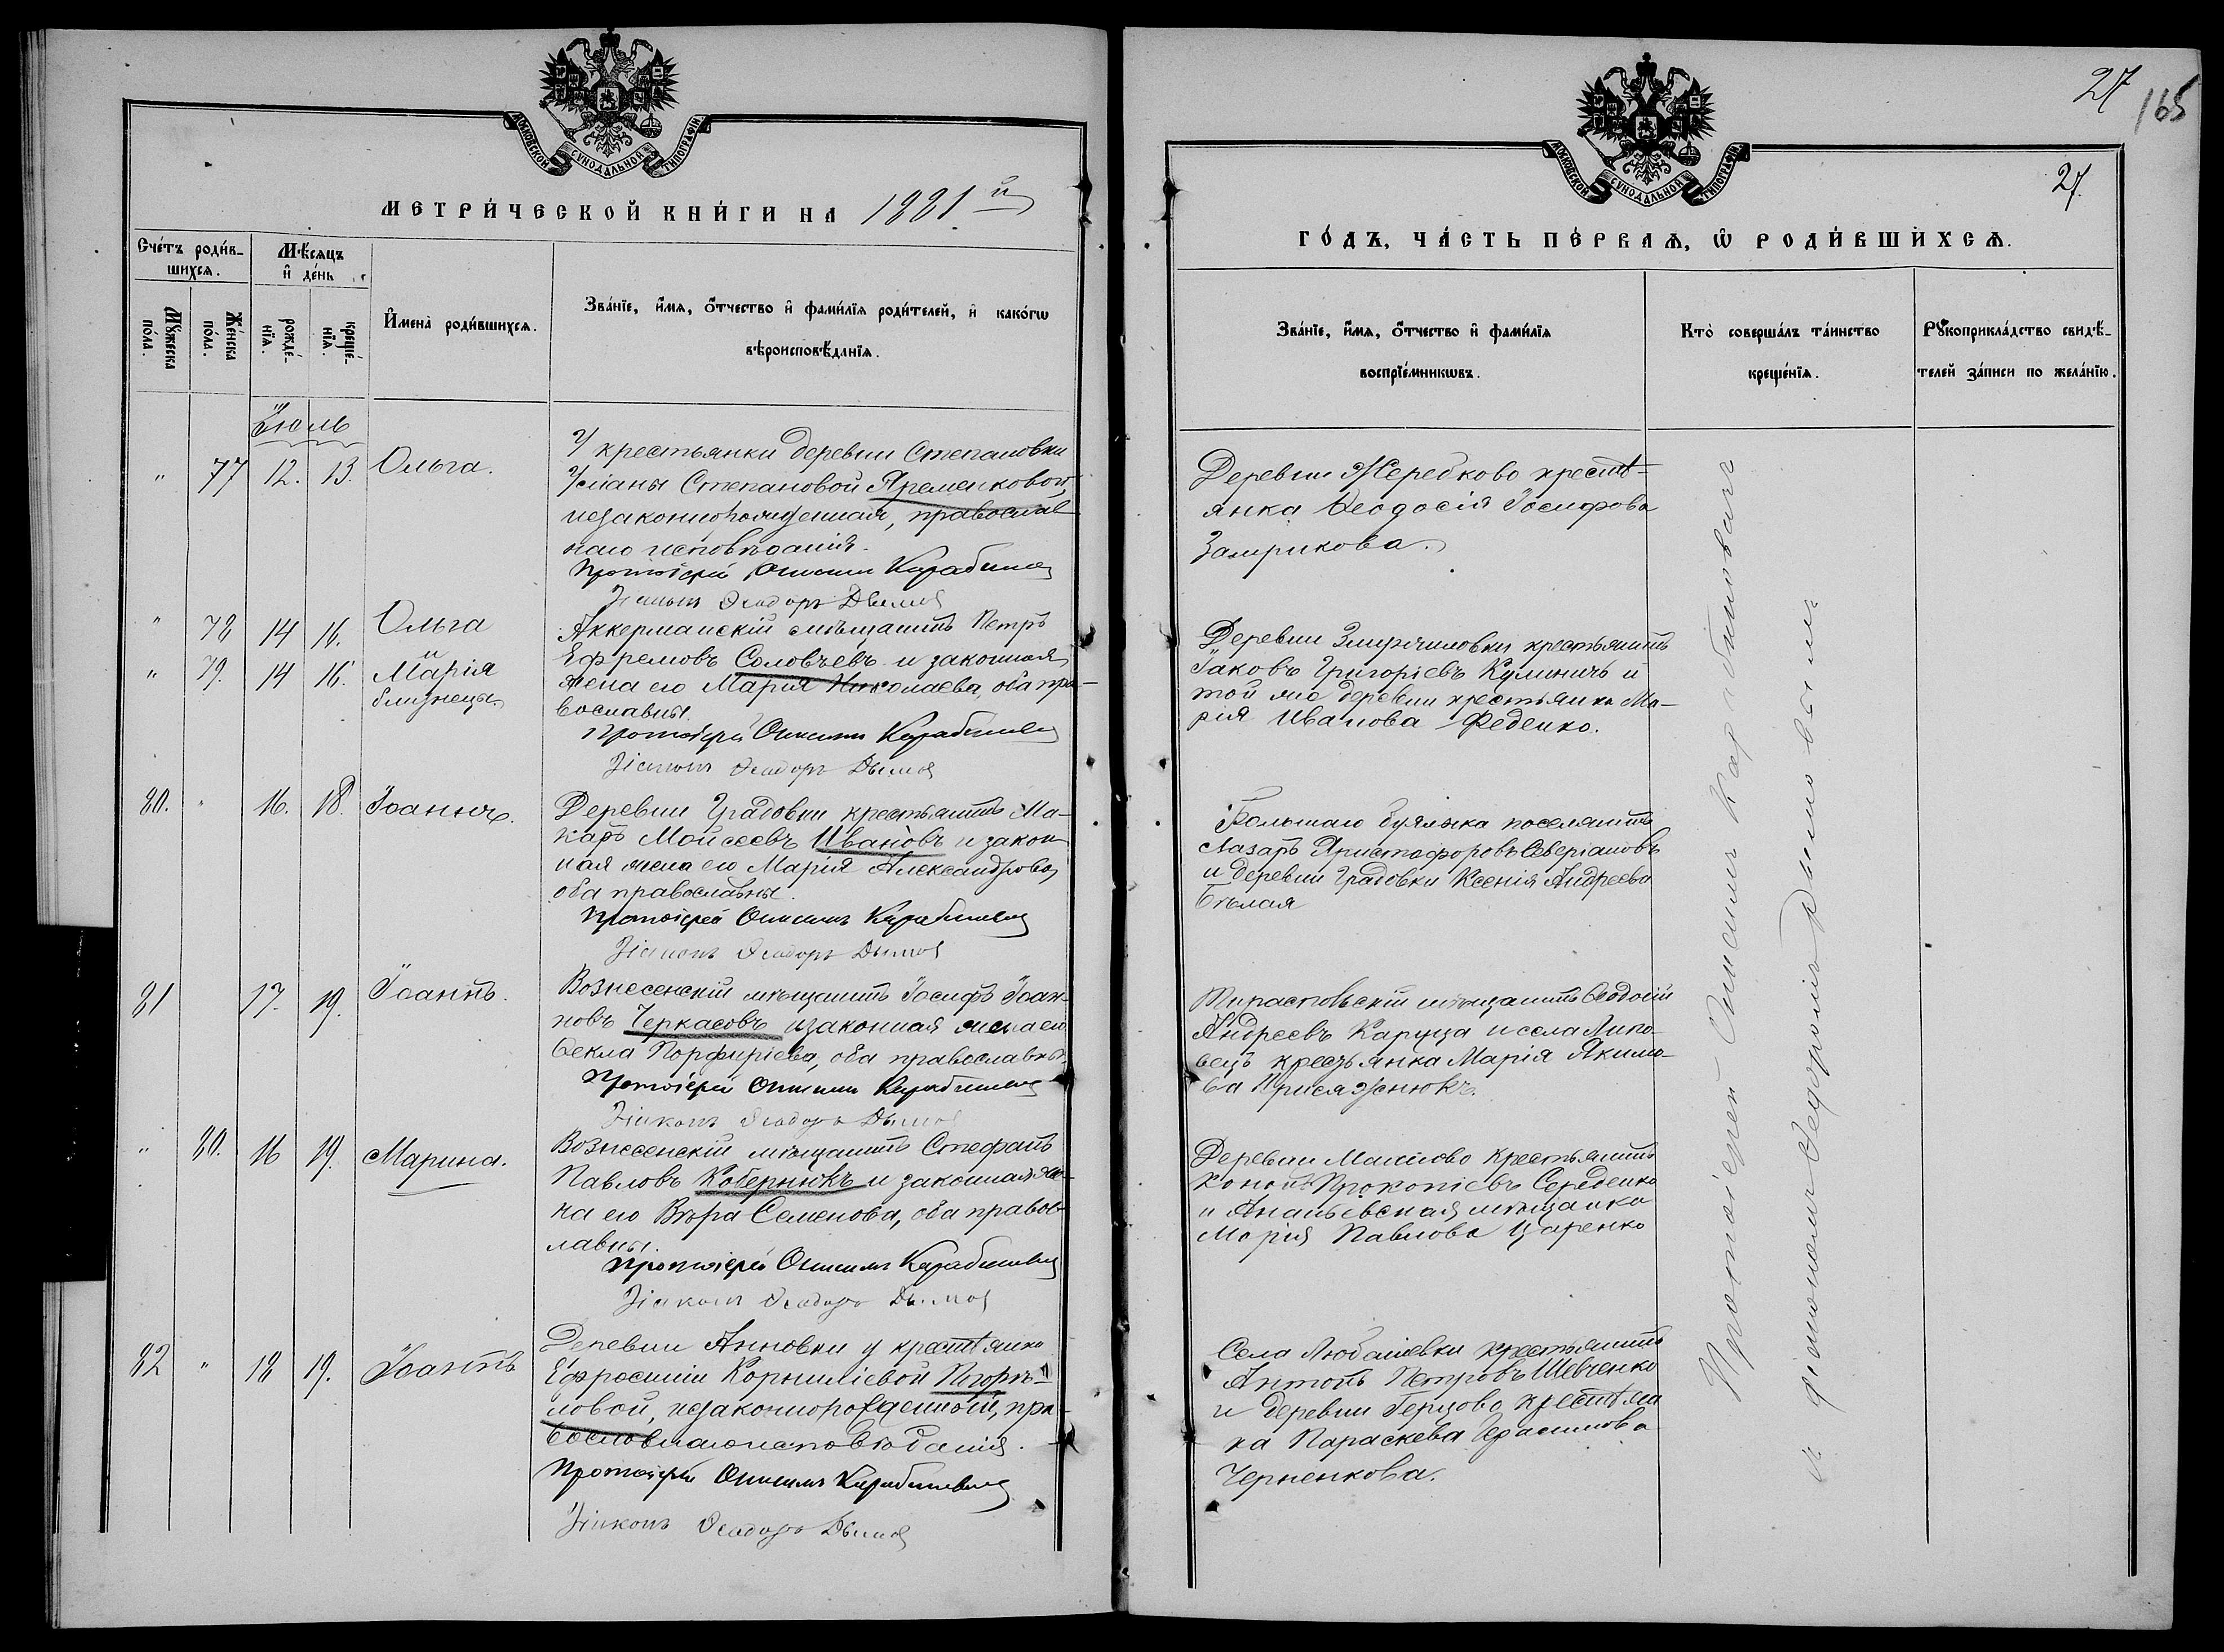 МОСКОВСКОЙ СѴНОДАЛЬНОЙ ТИПОГРАФІИ
МЕТРИ́ЧЕСКОЙ КНИ́ГИ НА 1881й
Сче́тъ роди́в-
шихся.
Мѣ́сяцъ
и҆ де́нь
Мꙋ́жеска по́ла.
Же́нска по́ла.
рожде́-нїя.
креще́-нїя.
И҆мена̀ роди́вшихся.
Зва́нїе, и҆́мя, ѻ҆́тчество и҆ фами́лїя роди́телей, и҆ како́гѡ
вѣроисповѣ́данїя.
Іюль
" 77 12. 13. Ольга.
У крестьянки деревни Степановки
Ульяны Степановой Яременковой,
незаконнорожденная, православ
наго исповѣданія.
Протоіерей Онисимъ Карабиневъ
Діаконъ Ѳеодоръ Дымов
" 78 14 16. Ольга
и
" 79. 14 16. Марія
близнецы.
Аккерманскій мѣщанинъ Петръ
Ефремовъ Соловьевъ и законная
жена его Марія Николаева, оба пра-
вославны.
Протоіерей Онисимъ Карабиневъ
Діаконъ Ѳеодоръ Дымов
80. " 16. 18. Іоаннъ.
Деревни Градовки крестьянинъ Ма-
каръ Моисеевъ Ивановъ и закон
ная жена его Марія Александрова,
оба православны.
Протоіерей Онисимъ Карабиневъ
Діаконъ Ѳеодоръ Дымов
81 17. 19. Іоаннъ.
Вознесенскій мѣщанинъ Іосифъ Іоан-
новъ Черкасовъ и законная жена его
Ѳекла Порфиріева, оба православны.
Протоіерей Онисимъ Карабиневъ
Діаконъ Ѳеодоръ Дымов
" 80. 16 19. Марина.
Вознесенскій мѣщанинъ Стефанъ
Павловъ Кобернюкъ и законная же-
на его Вѣра Семенова, оба правос-
лавны.
Протоіерей Онисимъ Карабиневъ
Діаконъ Ѳеодоръ Дымов
82 " 18 19. Іоаннъ
Деревни Анновки у крестьянки
Ефросиніи Корниліевой Погорѣ-
ловой, незаконнорожденный, пра-
вославнаго исповѣданія.
Протоіерей Онисимъ Карабиневъ
Діаконъ Ѳеодоръ Дымов
27 165
МОСКОВСКОЙ СѴНОДАЛЬНОЙ ТИПОГРАФІИ
27.
ГО́ДЪ, ЧА́СТЬ ПЕ́РВАѦ, Ѡ РОДИ́ВШИХСѦ.
Зва́нїе, и҆́мя, ѻ҆́тчество и҆ фами́лїя
воспрїе́мникѡвъ.
Кто̀ соверша́лъ та́инство
креще́нїя.
Рꙋкоприкла́дство свидѣ́-
телей за́писи по жела́нїю.
Деревни Жеребково кресть-
янка Ѳеодосія Іосифова
Замрикова.
Деревни крестьянинъ
Іаковъ Григоріевъ Кулиничъ и
той же деревни крестьянка Ма-
рія Иванова Феденко.
Большаго Буялыка поселянинъ
Лазарь Христофоровъ Северіановъ
и деревни Градовки Ксенія Андреева
Бѣлая
Тираспольскій мѣщанинъ Ѳеодосій
Андреевъ Каруца и села Липо-
вецъ крестьянка Марія Якимо-
ва Присяжнюкъ.
Деревни Маниово крестьянинъ
Кононъ Прокопіевъ Середенко
и Ананьевская мѣщанка
Марія Павлова Царенко
Села Любашевки крестьянинъ
Антонъ Петровъ Шевченко
и деревни Герцово крестьян
ка Параскева Герасимова
Черненкова.
Протоіерей Онисимъ Карабиневъ
и діакономъ Ѳеодоромъ Дымовымъ